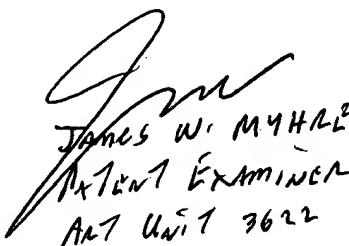 JAMES W. MYHRE
PATENT EXAMINER
ART UNIT 3622